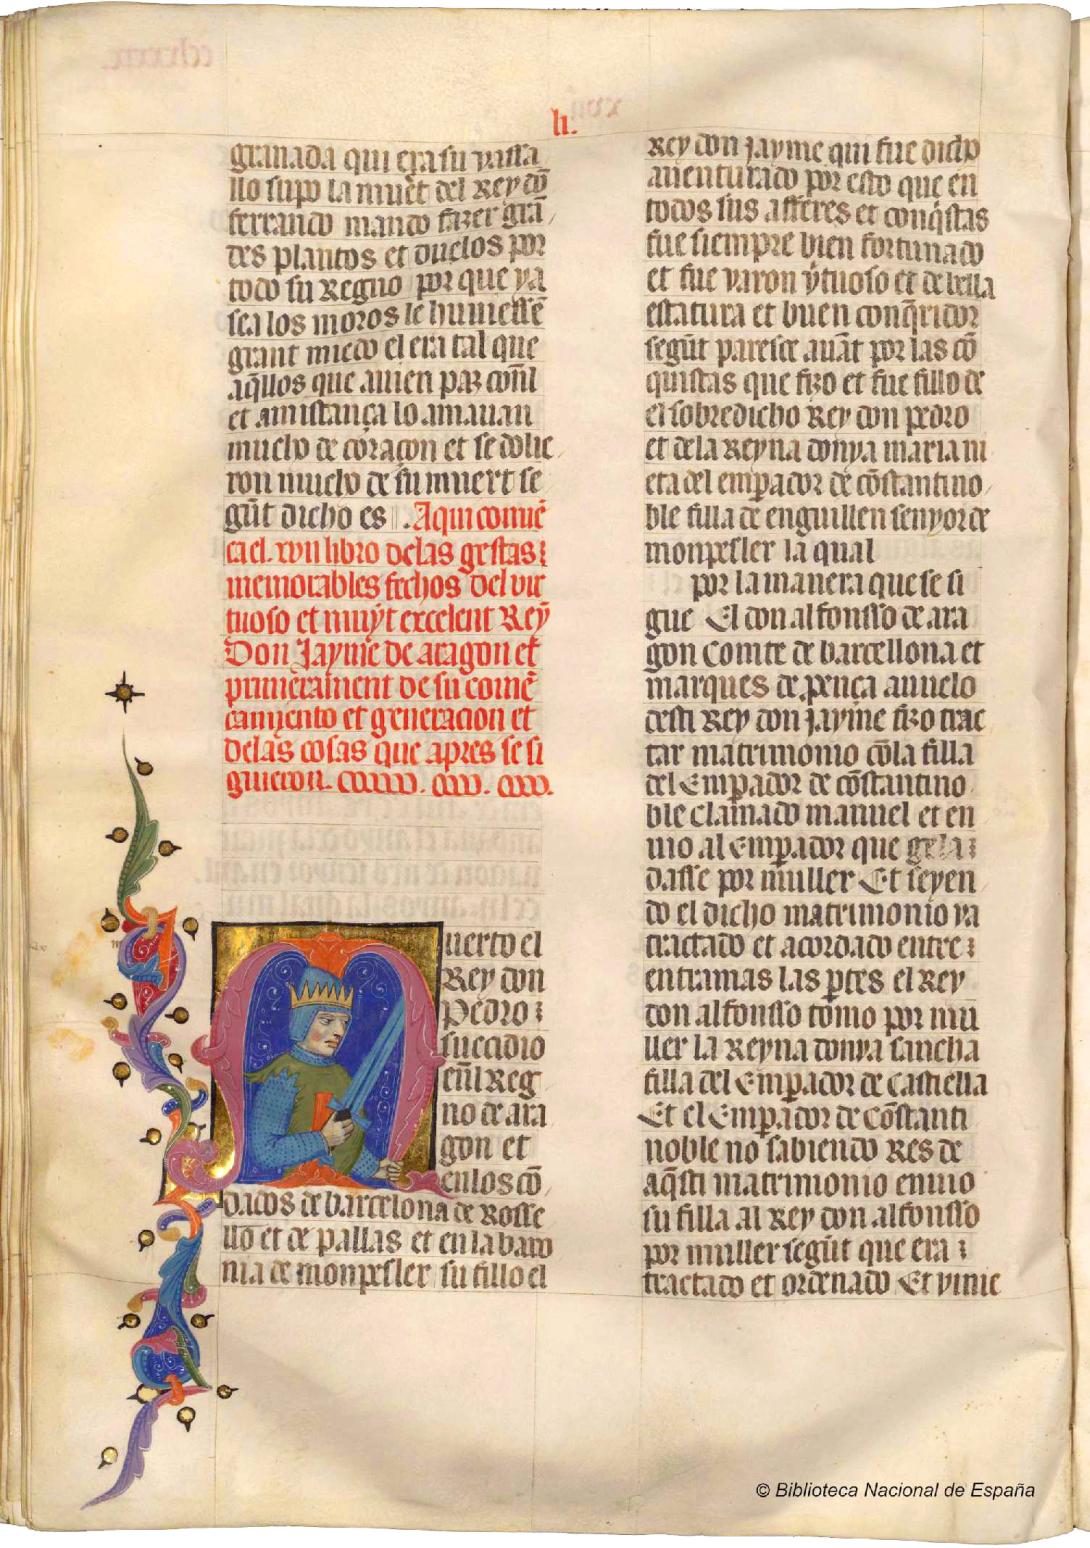 h.
granada qui era su vassa
llo supo la muẽt del Rey dõ
ferrando mando fazer grã
des plantos et duelos por
todo su Regno por que ya
sea los moros le huuiessẽ
grant miedo el era tal que
aq̃llos que auien paz conl̃
et amistança lo amauan
mucho de coraçon et se dolie
ron mucho de su muert se
gũt dicho es. Aqui comiẽ
ça el. xvii libro de las gestas et
memorables fechos del vir
tuoso et muyt excelent Rey
Don Jayme de aragon et
primerament de su comẽ
çamiento et generacion et
de las cosas que apres se si
guieron.
Muerto el
Rey don
Pedro
succidio
enl̃ Reg
no de ara
gon et
en los cõ
dados de barcelona de Rosse
llo et de pallas et en la baro
nia de monpesler su fillo el
Rey don Jayme qui fue dicho
auenturado por esto que en
todos sus afferes et conq̃stas
fue siempre bien fortunado
et fue varon ṽtuoso et de bella
estatura et buen conq̃ridor
segũt paresce auãt por las cõ
quistas que fizo et fue fillo de
el sobredicho Rey don pedro
et de la Reyna donya maria ni
eta del emp̱ador de cõstantino
ble filla de enguillen senyor de
monpesler la qual
por la manera que se si
gue El don alfonsso de ara
gon Comte de barcellona et
marques de p̱ença auuelo
desti Rey don Jayme fizo trac
tar matrimonio cõ la filla
del Emp̱ador de cõstantino
ble clamado manuel et en
uio al Emp̱ador que gela
dasse por muller Et seyen
do el dicho matrimonio ya
tractado et acordado entre
entramas las p̱tes el Rey
don alfonsso tomo por mu
ller la Reyna donya sancha
filla del Emp̱ador de Castiella
Et el Emp̱ador de Cõstanti
noble no sabiendo Res de
aq̃sti matrimonio enuio
su filla al Rey don alfonsso
por muller segũt que era
tractado et ordenado Et vinie
© Biblioteca Nacional de España